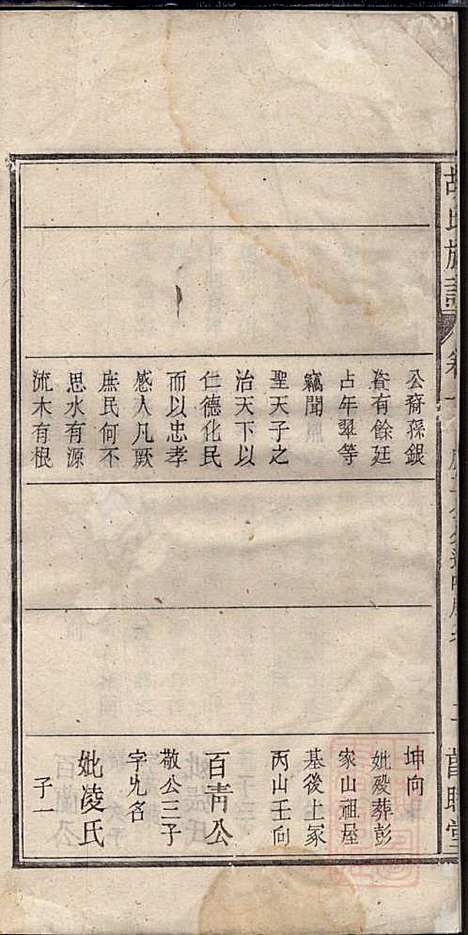 胡氏族譜
卷
公裔孫銀
占年翠等
竊聞
聖天子之
治天下以
仁德化民
而以忠孝
感人凡厥
庶民何不
思水有源
流木有根
坤向
妣歿葬彭
家山祖屋
基後土冢
丙山壬向
百青公
敬公三子
字九名
妣凌氏
子一